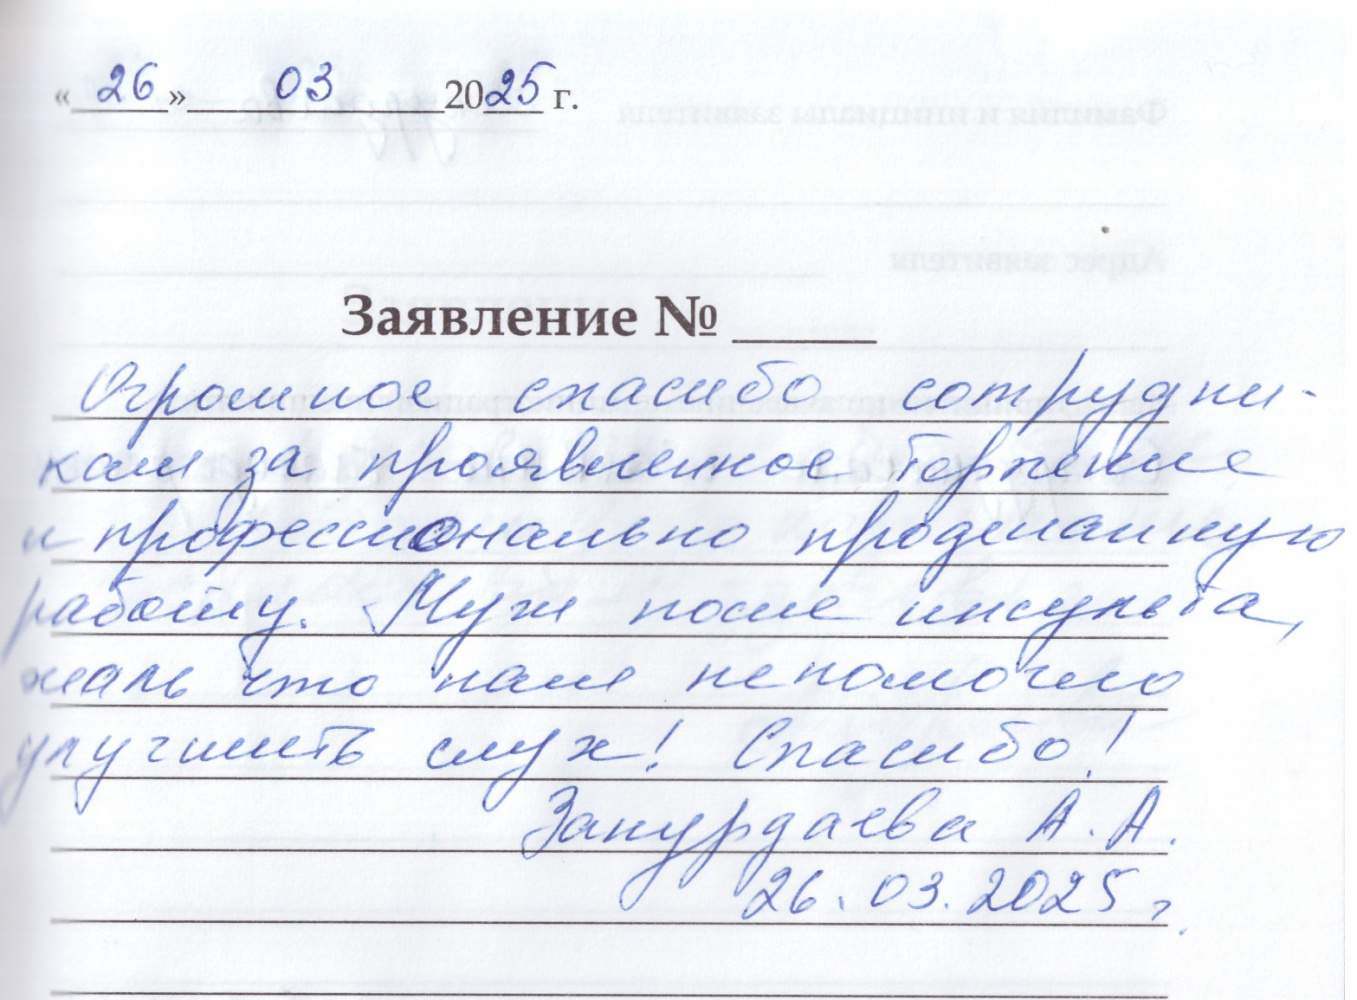 « 26 » 03 2025 г.
Заявление № ____
Огромное спасибо сотрудни-
кам за проявленное терпение
и профессионально проделанную
работу. Муж после инсульта,
жаль что нам непомогло
улучшить слух! Спасибо!
Занурдаева А. А.
26.03.2025 г.